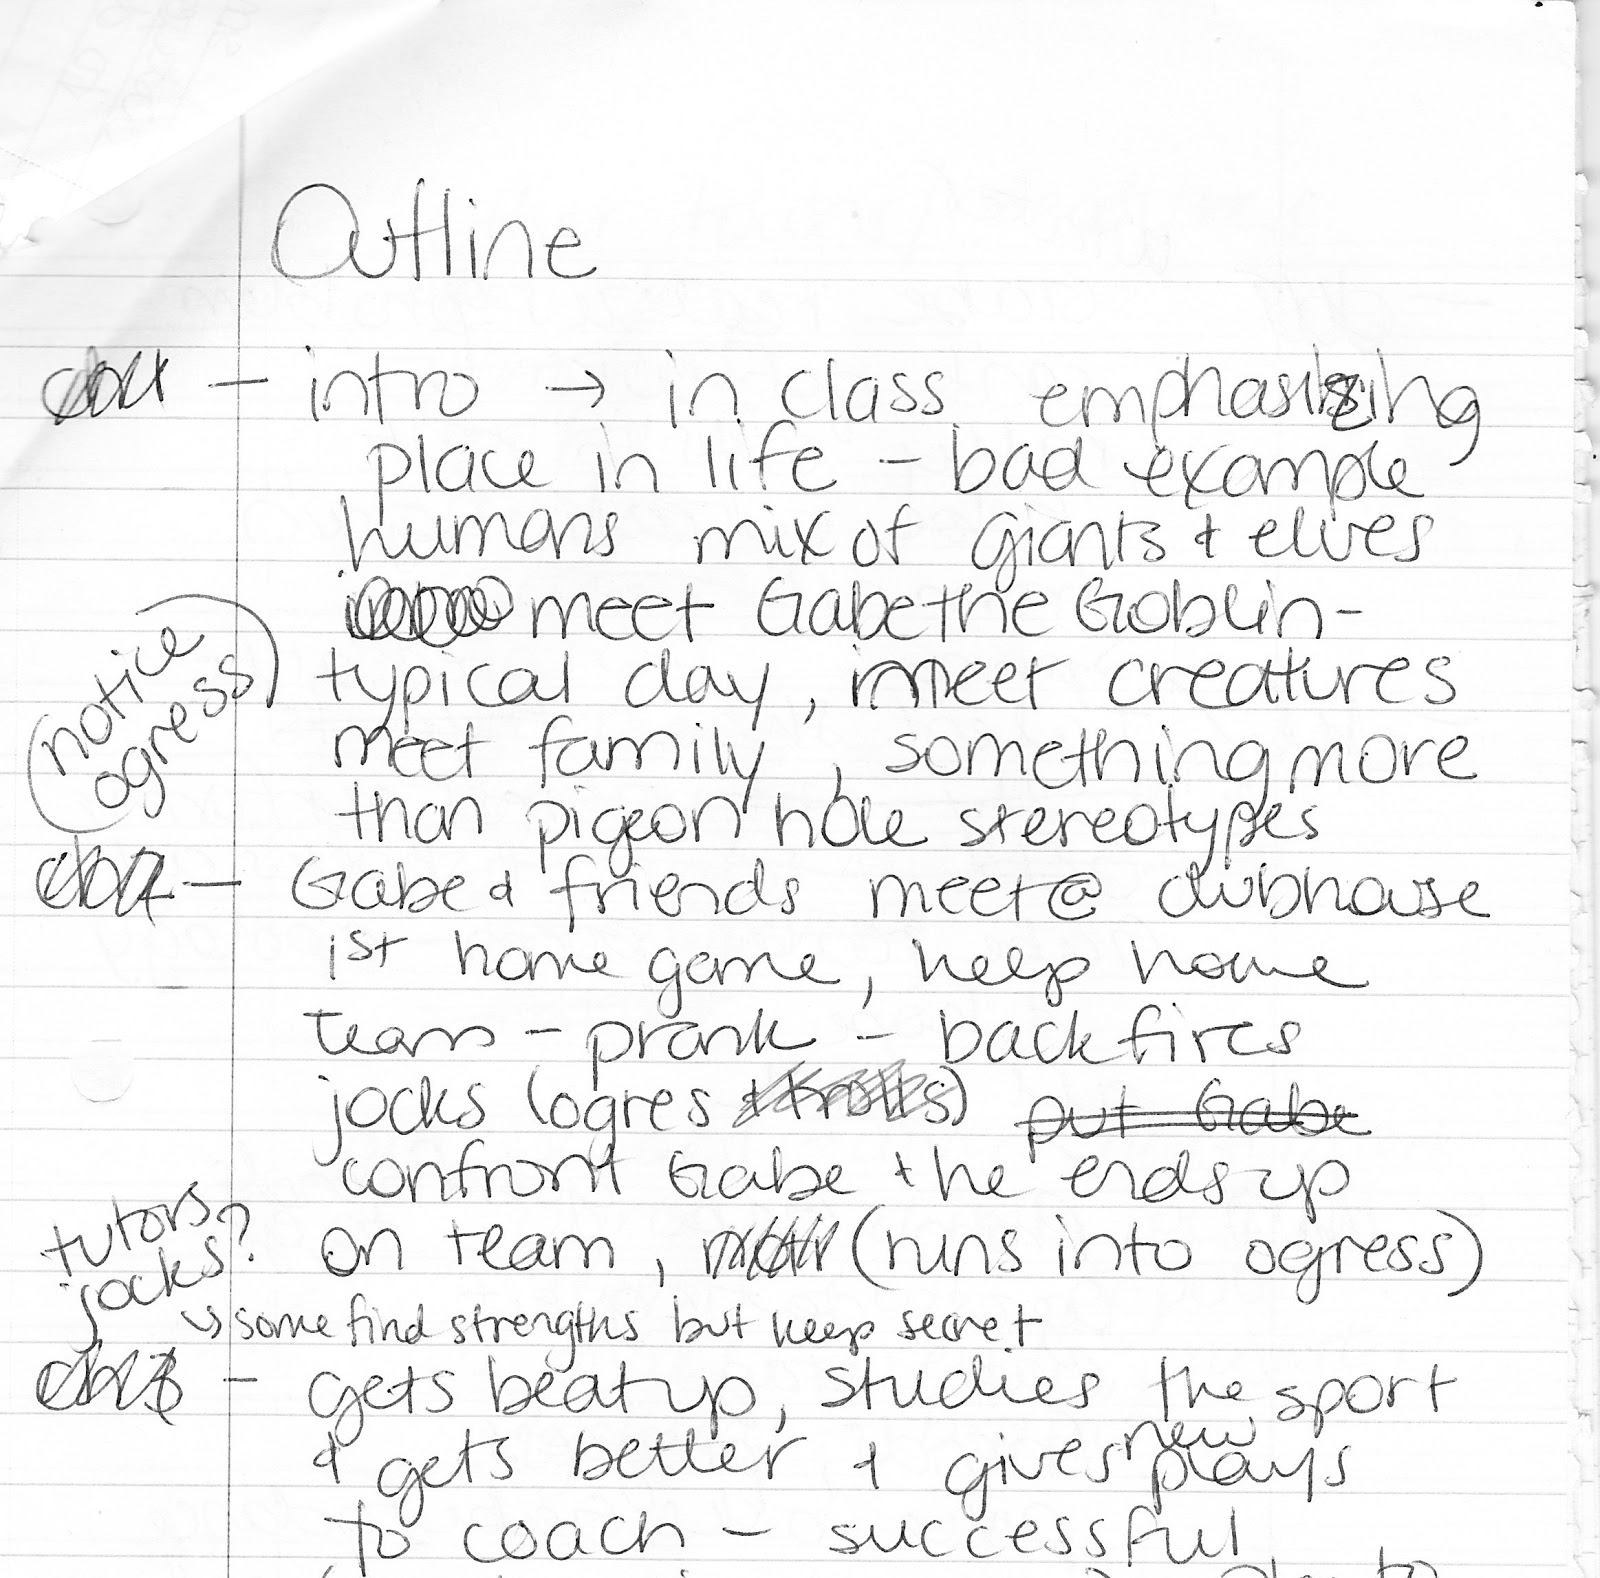 Outline
- intro → in class emphasizing
place in life - bad example
humans mix of giants & elves
meet Gabe the Goblin -
(notice ogress)
typical day, meet creatures
meet family, something more
than pigeon hole stereotypes
- Gabe & friends meet @ clubhouse
1st home game, help home
team - prank - backfires
jocks (ogres & trolls) put Gabe
confront Gabe & he ends up
on team, (runs into ogress)
tutors jocks?
↳ some find strengths but keep secret
- gets beat up, studies the sport
& gets better & gives new plays
to coach - successful